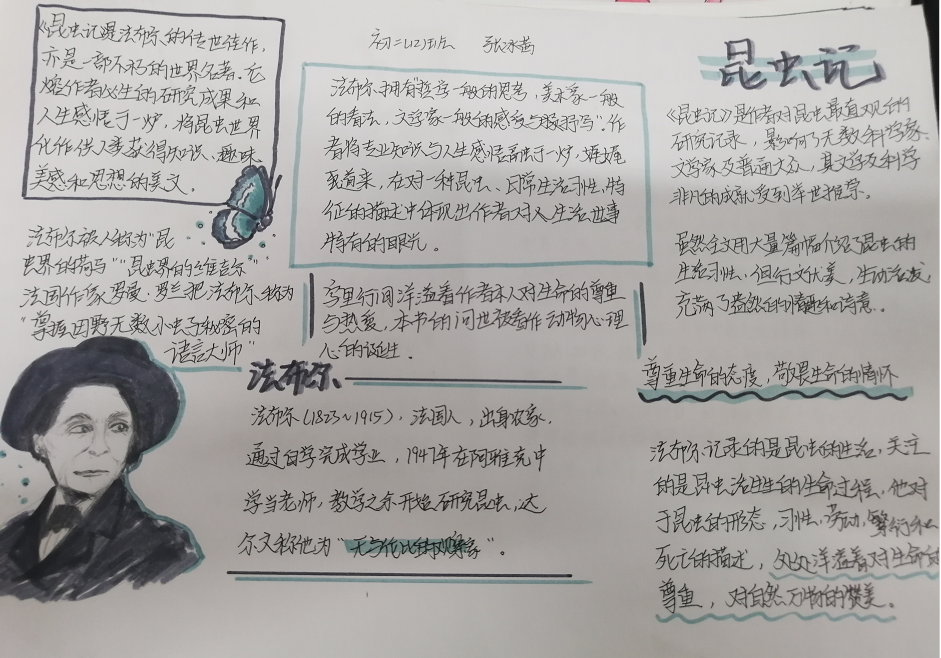 《昆虫记是法布尔的传世佳作,
亦是一部不朽的世界名著.它
熔作者毕生的研究成果和
人生感悟于一炉,将昆虫世界
化作供人类获得知识、趣味
美感和思想的美文.
初二(2)班 张冰茜
法布尔拥有"哲学家一般的思考,美术家一般
的看法,文学家一般的感受与抒写".作
者将专业知识与人生感悟融于一炉,娓娓
道来,在对一种昆虫、日常生活习性,特
征的描述中体现出作者对人生活世事
特有的眼光.
昆虫记
《昆虫记》是作者对昆虫最直观的
研究记录,影响了无数科学家
文学家及普通大众,其文学及科学
非凡的成就受到举世推崇.
虽然全文用大量篇幅介绍了昆虫的
生活习性,但行文优美,生动活泼,
充满了盎然的情趣和诗意.
法布尔被人称为"昆
虫界的荷马""昆虫界的维吉尔"
法国作家罗曼·罗兰把法布尔称为
"掌握田野无数小虫子秘密的
语言大师"
字里行间洋溢着作者本人对生命的尊重
与热爱,本书的问世被看作动物心理
心的诞生.
尊重生命的态度,敬畏生命的情怀
法布尔、
法布尔(1823~1915),法国人,出身农家,
通过自学完成学业,1947年在阿雅克中
学当老师,教学之余开始研究昆虫,达
尔文称他为"无与伦比的观察家"。
法布尔记录的是昆虫的生活,关注
的是昆虫活生生的生命过程,他对
于昆虫的形态,习性,劳动,繁衍和
死亡的描述,处处洋溢着对生命的
尊重,对自然万物的赞美。